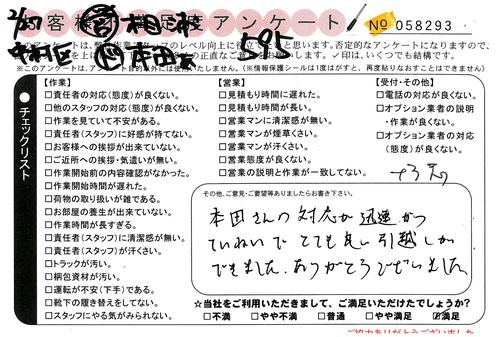 2/27
お客様満足度アンケート
No 058293
中村区
本田
このアンケートは、
否定的なアンケートになりますので、
※このアンケートは、アンケート目的以外には使用いたしません。(※情報保護シールは1度はがすと、再度貼りなおすことはできません)
●チェックリスト
【作業】
□責任者の対応(態度)が良くない。
□他のスタッフの対応(態度)が良くない。
□作業を見ていて不安がある。
□責任者(スタッフ)に好感が持てない。
□お客様への挨拶が出来ていない。
□ご近所への挨拶・気遣いが無い。
□作業開始前の内容確認がなかった。
□作業開始時間が遅れた。
□荷物の取り扱いが雑である。
□お部屋の養生が出来ていない。
□作業時間が長すぎる。
□責任者(スタッフ)に清潔感が無い。
□責任者(スタッフ)が汗くさい。
□トラックが汚い。
□梱包資材が汚い。
□運転が不安(下手)である。
□靴下の履き替えをしてない。
□スタッフにやる気がみられない。
【営業】
□見積もり時間に遅れた。
□見積もり時間が長い。
□営業マンに清潔感が無い。
□営業マンが煙草くさい。
□営業マンが汗くさい。
□営業態度が良くない。
□営業の説明と作業が一致してない。
【受付・その他】
□電話の対応が良くない。
□オプション業者の説明
・作業が良くない。
□オプション業者の対応
(態度)が良くない。
その他、ご意見・ご要望等ありましたらお書き下さい。
本田さんの対応が迅速かつ
ていねいでとても良い引越しが
できました。ありがとうございました。
☆当社をご利用いただきまして、ご満足いただけたでしょうか?
□不満 □やや不満 □普通 □やや満足 ☑満足
ご協力ありがとうございました